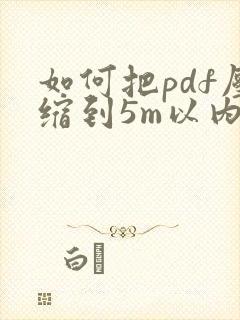 如何把pdf压
缩到5m以内
白